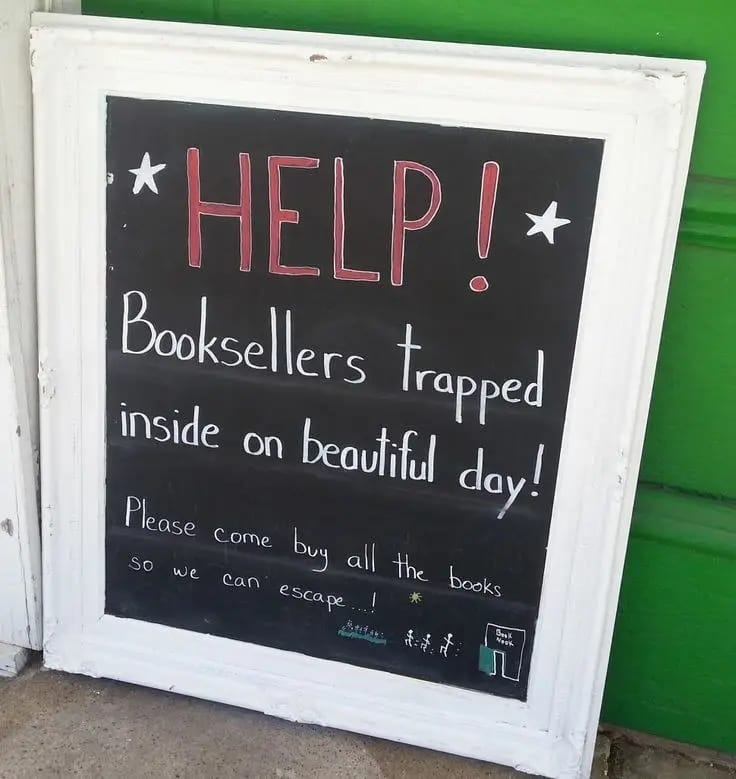 HELP!
Booksellers trapped
inside on beautiful day!
Please come buy all the books
so we can escape...!
Book
Nook